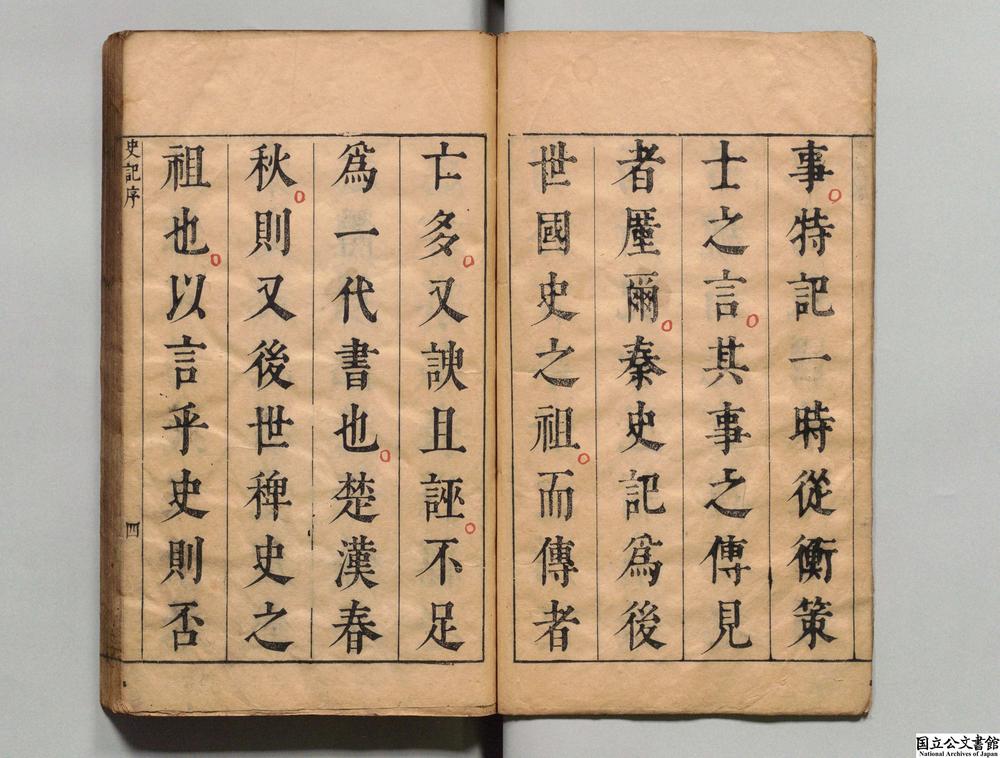 事特記一時從衡策
士之言其事之傳見
者廑爾秦史記爲後
世國史之祖而傳者
亡多又諛且誣不足
爲一代書也楚漢春
秋則又後世稗史之
祖也以言乎史則否
史記序
四
国立公文書館
National Archives of Japan